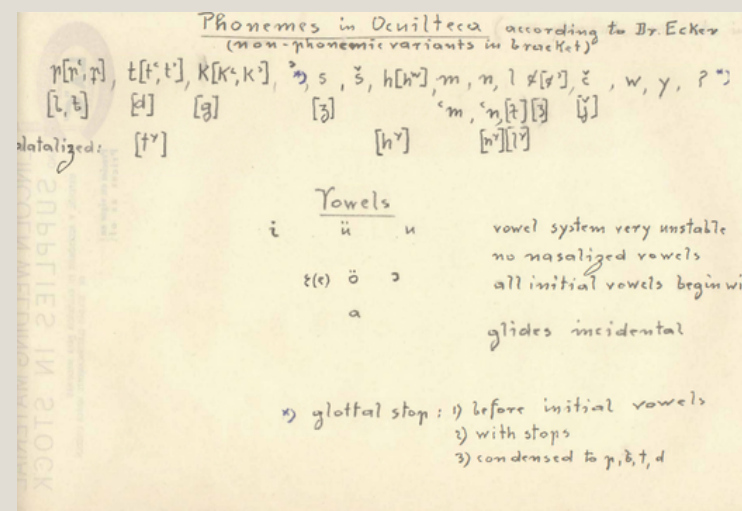 Phonemes in Ocuilteca according to Dr. Ecker
(non-phonemic variants in bracket)
p[pʿ,p], t[tʿ,tʾ], k[kʿ,kʾ], ʾ *), s, š, h[hʷ], m, n, l ¢[¢ʾ], č, w, y, ? *)
[b, ƀ] [d] [g] [ʒ] ʿm, ʿn, [ɫ] [ʒ] [ǰ]
platalized: [tʸ] [hʸ] [nʸ] [lʸ]
Vowels
i ü u vowel system very unstable
no nasalized vowels
ɛ(e) ö ɔ all initial vowels begin wi
a
glides incidental
*) glottal stop: 1) before initial vowels
2) with stops
3) condensed to p, b, t, d
SUPPLIES IN STOCK
LINCOLN WELDING